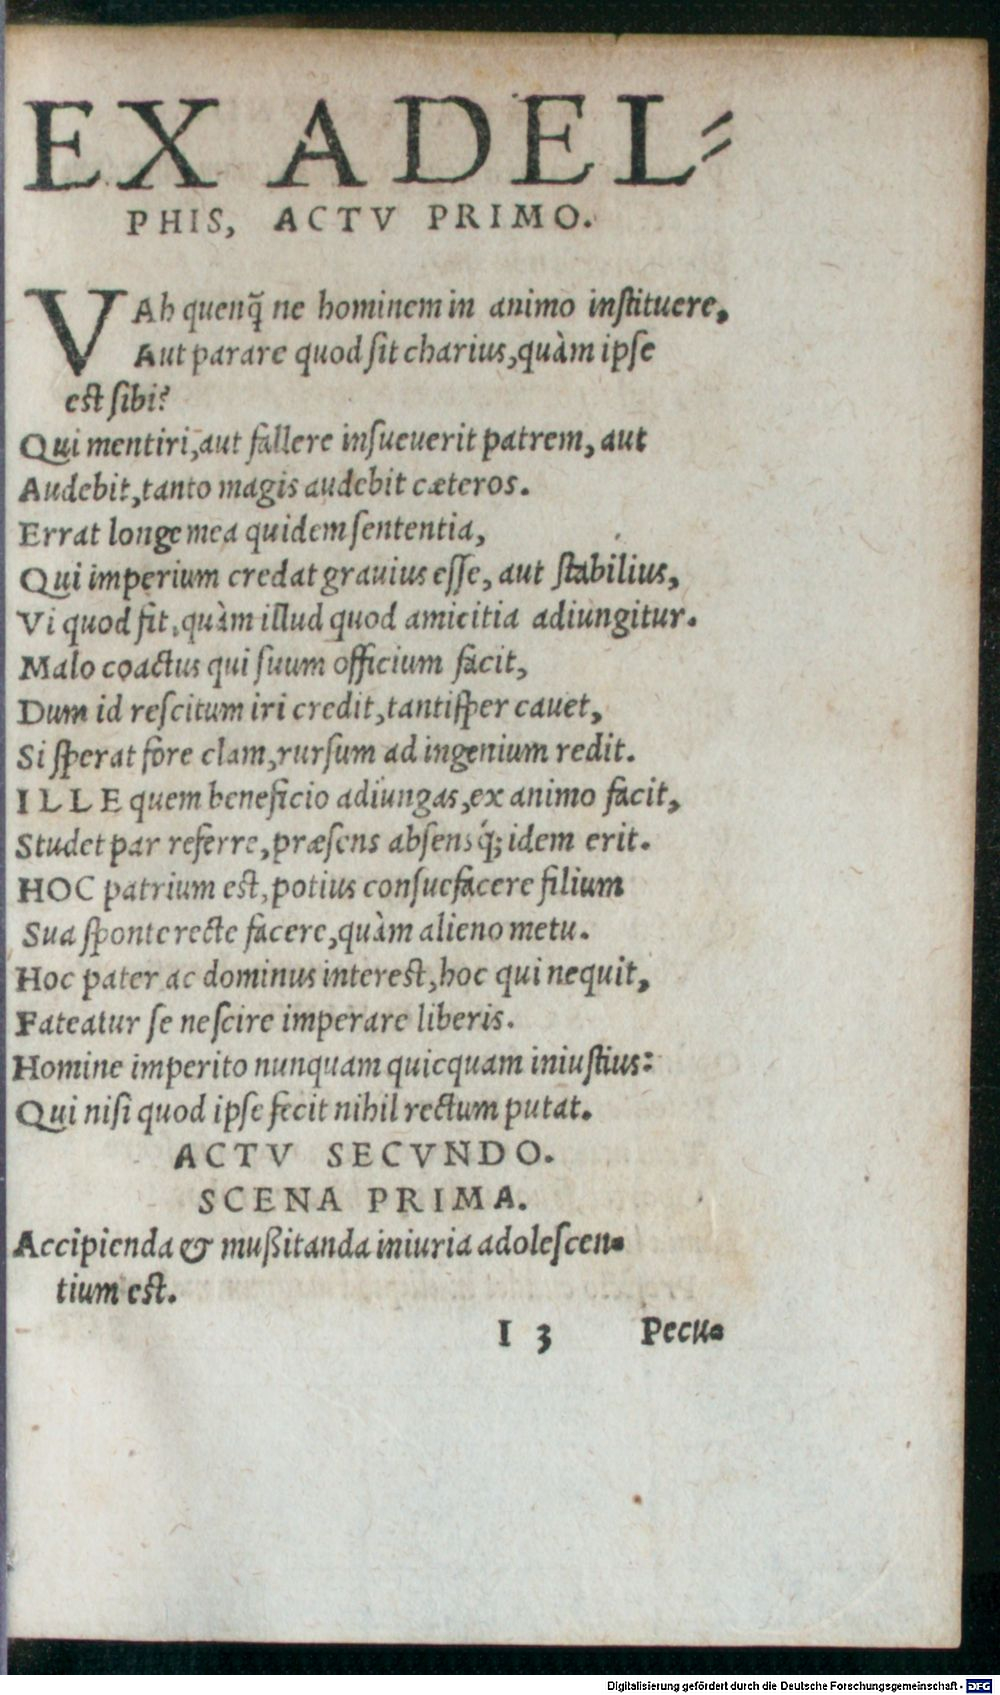 EX ADEL⸗
PHIS, ACTV PRIMO.
VAh quenq̃ ne hominem in animo instituere,
Aut parare quod sit charius, quàm ipse
est sibi?
Qui mentiri, aut fallere insueuerit patrem, aut
Audebit, tanto magis audebit cæteros.
Errat longe mea quidem sententia,
Qui imperium credat grauius esse, aut stabilius,
Vi quod fit, quàm illud quod amicitia adiungitur.
Malo coactus qui suum officium facit,
Dum id rescitum iri credit, tantisper cauet,
Si sperat fore clam, rursum ad ingenium redit.
ILLE quem beneficio adiungas, ex animo facit,
Studet par referre, præsens absensq́; idem erit.
HOC patrium est, potius consuefacere filium
Sua sponte recte facere, quàm alieno metu.
Hoc pater ac dominus interest, hoc qui nequit,
Fateatur se nescire imperare liberis.
Homine imperito nunquam quicquam iniustius:
Qui nisi quod ipse fecit nihil rectum putat.
ACTV SECVNDO.
SCENA PRIMA.
Accipienda & mußitanda iniuria adolescen⸗
tium est.
I 3 Pecu⸗
Digitalisierung gefördert durch die Deutsche Forschungsgemeinschaft - DFG